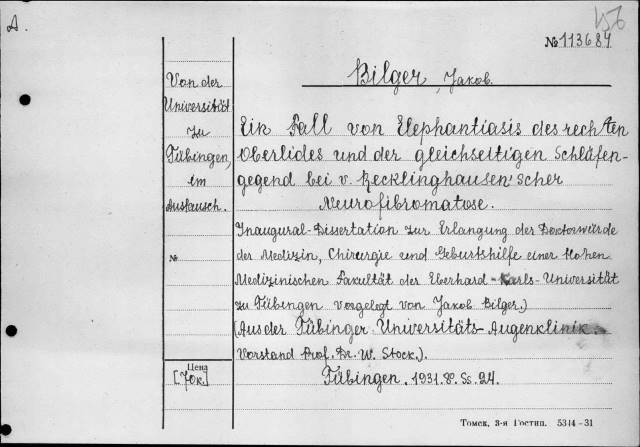 A.
156
№ 113684
Bilger, Jakob.
Von der
Universität
zu
Tübingen,
im
Austausch.
Ein Fall von Elephantiasis des rechten
Oberlides und der gleichseitigen Schläfen-
gegend bei v. Recklinghausen'scher
Neurofibromatose.
Inaugural-Dissertation zur Erlangung der Doktorwürde
der Medizin, Chirurgie und Geburtshilfe einer Hohen
№
Medizinischen Fakultät der Eberhard-Karls-Universität
zu Tübingen vorgelegt von Jakob Bilger.)
(Aus der Tübinger Universitäts-Augenklinik.
Vorstand Prof. Dr. W. Stock.).
Цена
[70к.]
Tübingen. 1931. 8°. Ss. 24.
Томск, 3-я Гостип. 5344-31